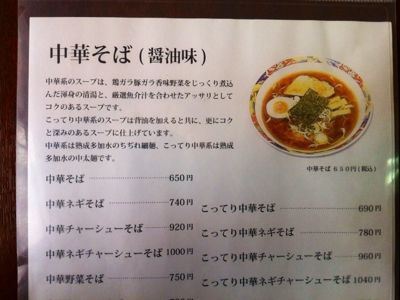 中華そば(醤油味)
中華系のスープは、鶏ガラ豚ガラ香味野菜をじっくり煮込
んだ渾身の清湯と、厳選魚介汁を合わせたアッサリとして
コクのあるスープです。
こってり中華系のスープは背油を加えると共に、更にコク
と深みのあるスープに仕上げています。
中華系は熟成多加水のちぢれ細麺、こってり中華系は熟成
多加水の中太麺です。
中華そば 650円(税込)
中華そば 650円
中華ネギそば 740円
中華チャーシューそば 920円
中華ネギチャーシューそば 1000円
中華野菜そば 750円
こってり中華そば 690円
こってり中華ネギそば 780円
こってり中華チャーシューそば 960円
こってり中華ネギチャーシューそば 1040円